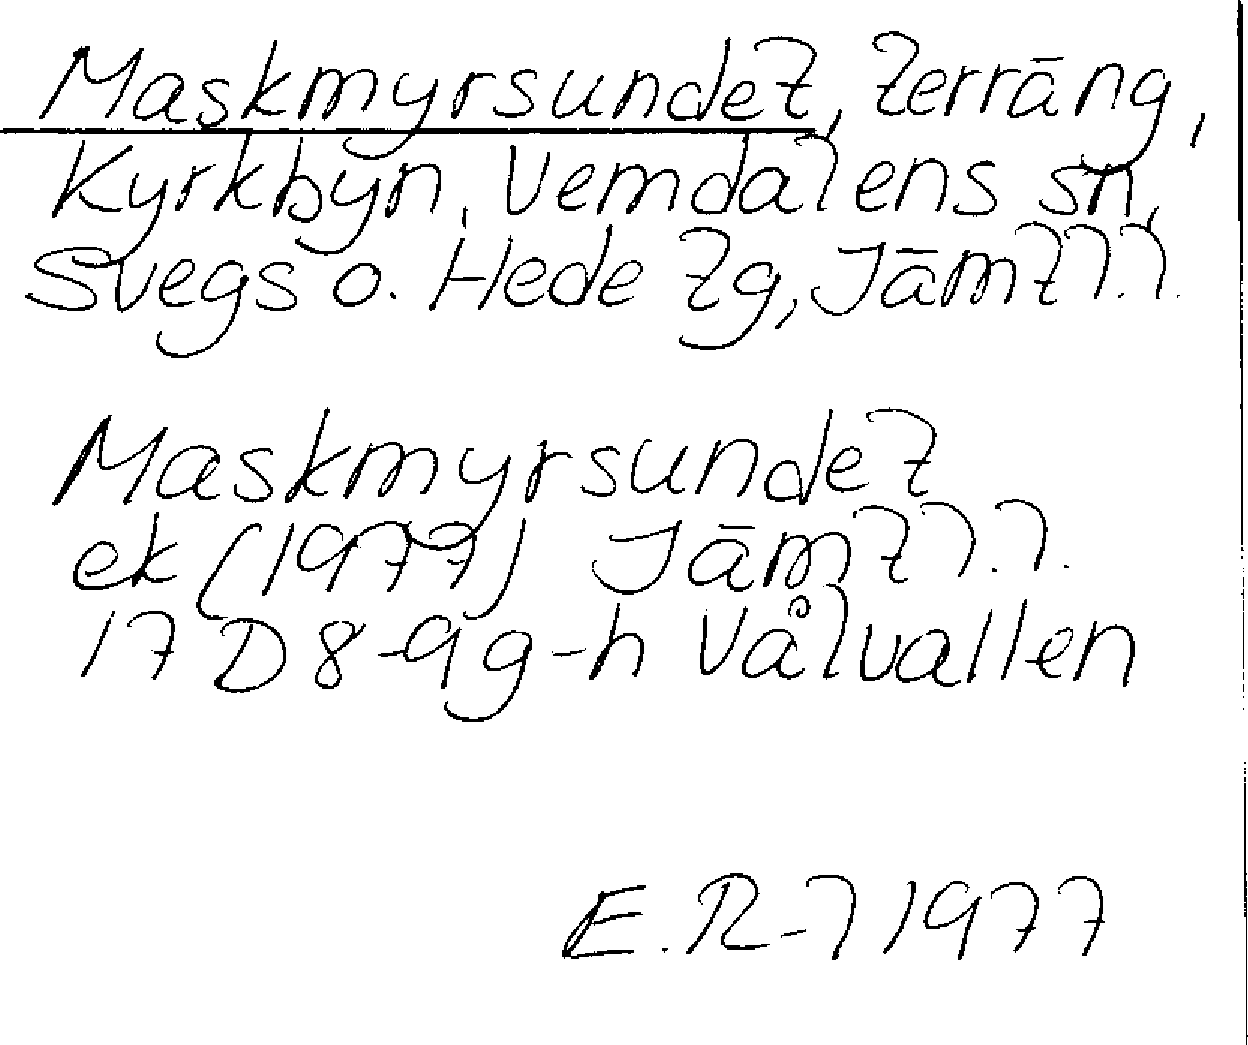 Maskmyrsundet, terräng,
Kyrkbyn, Vemdalens sn,
Svegs o. Hede tg, Jämtl.l.
Maskmyrsundet
ek (1977) Jämtl.l.
17 D 8-9 g-h Vålvallen
E.R-l 1977